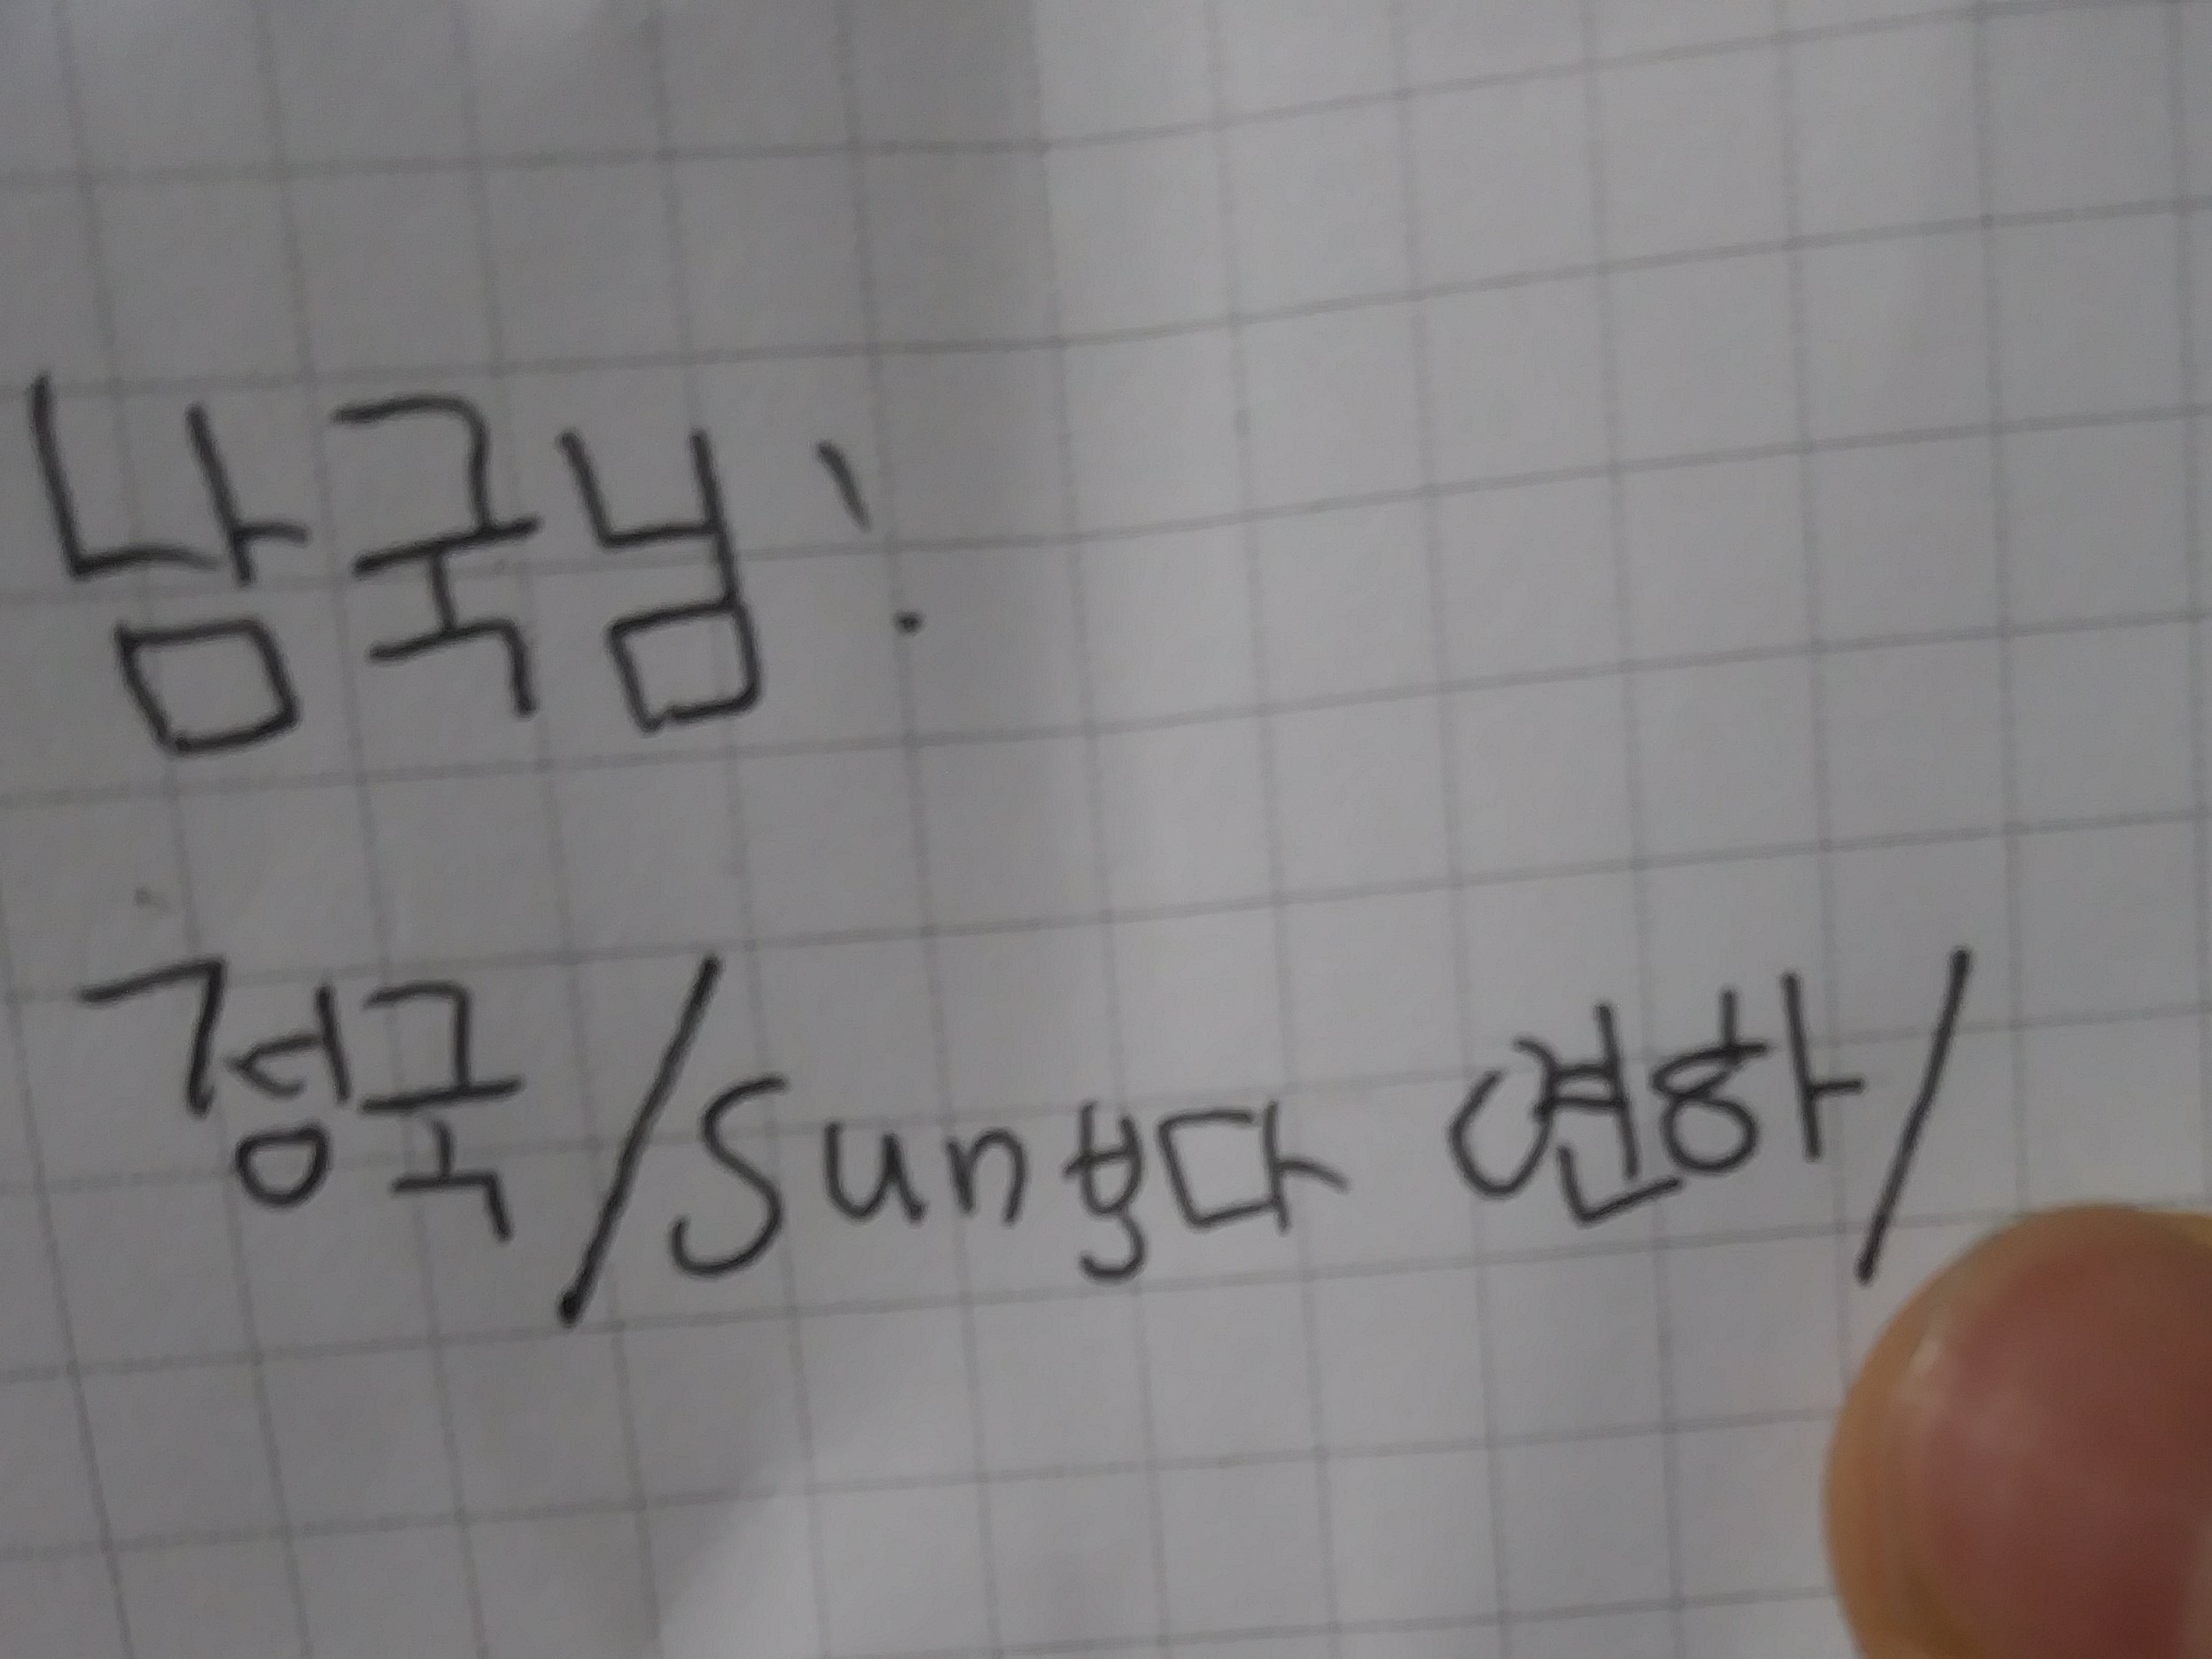 남국님!
정국/sun보다 연하/